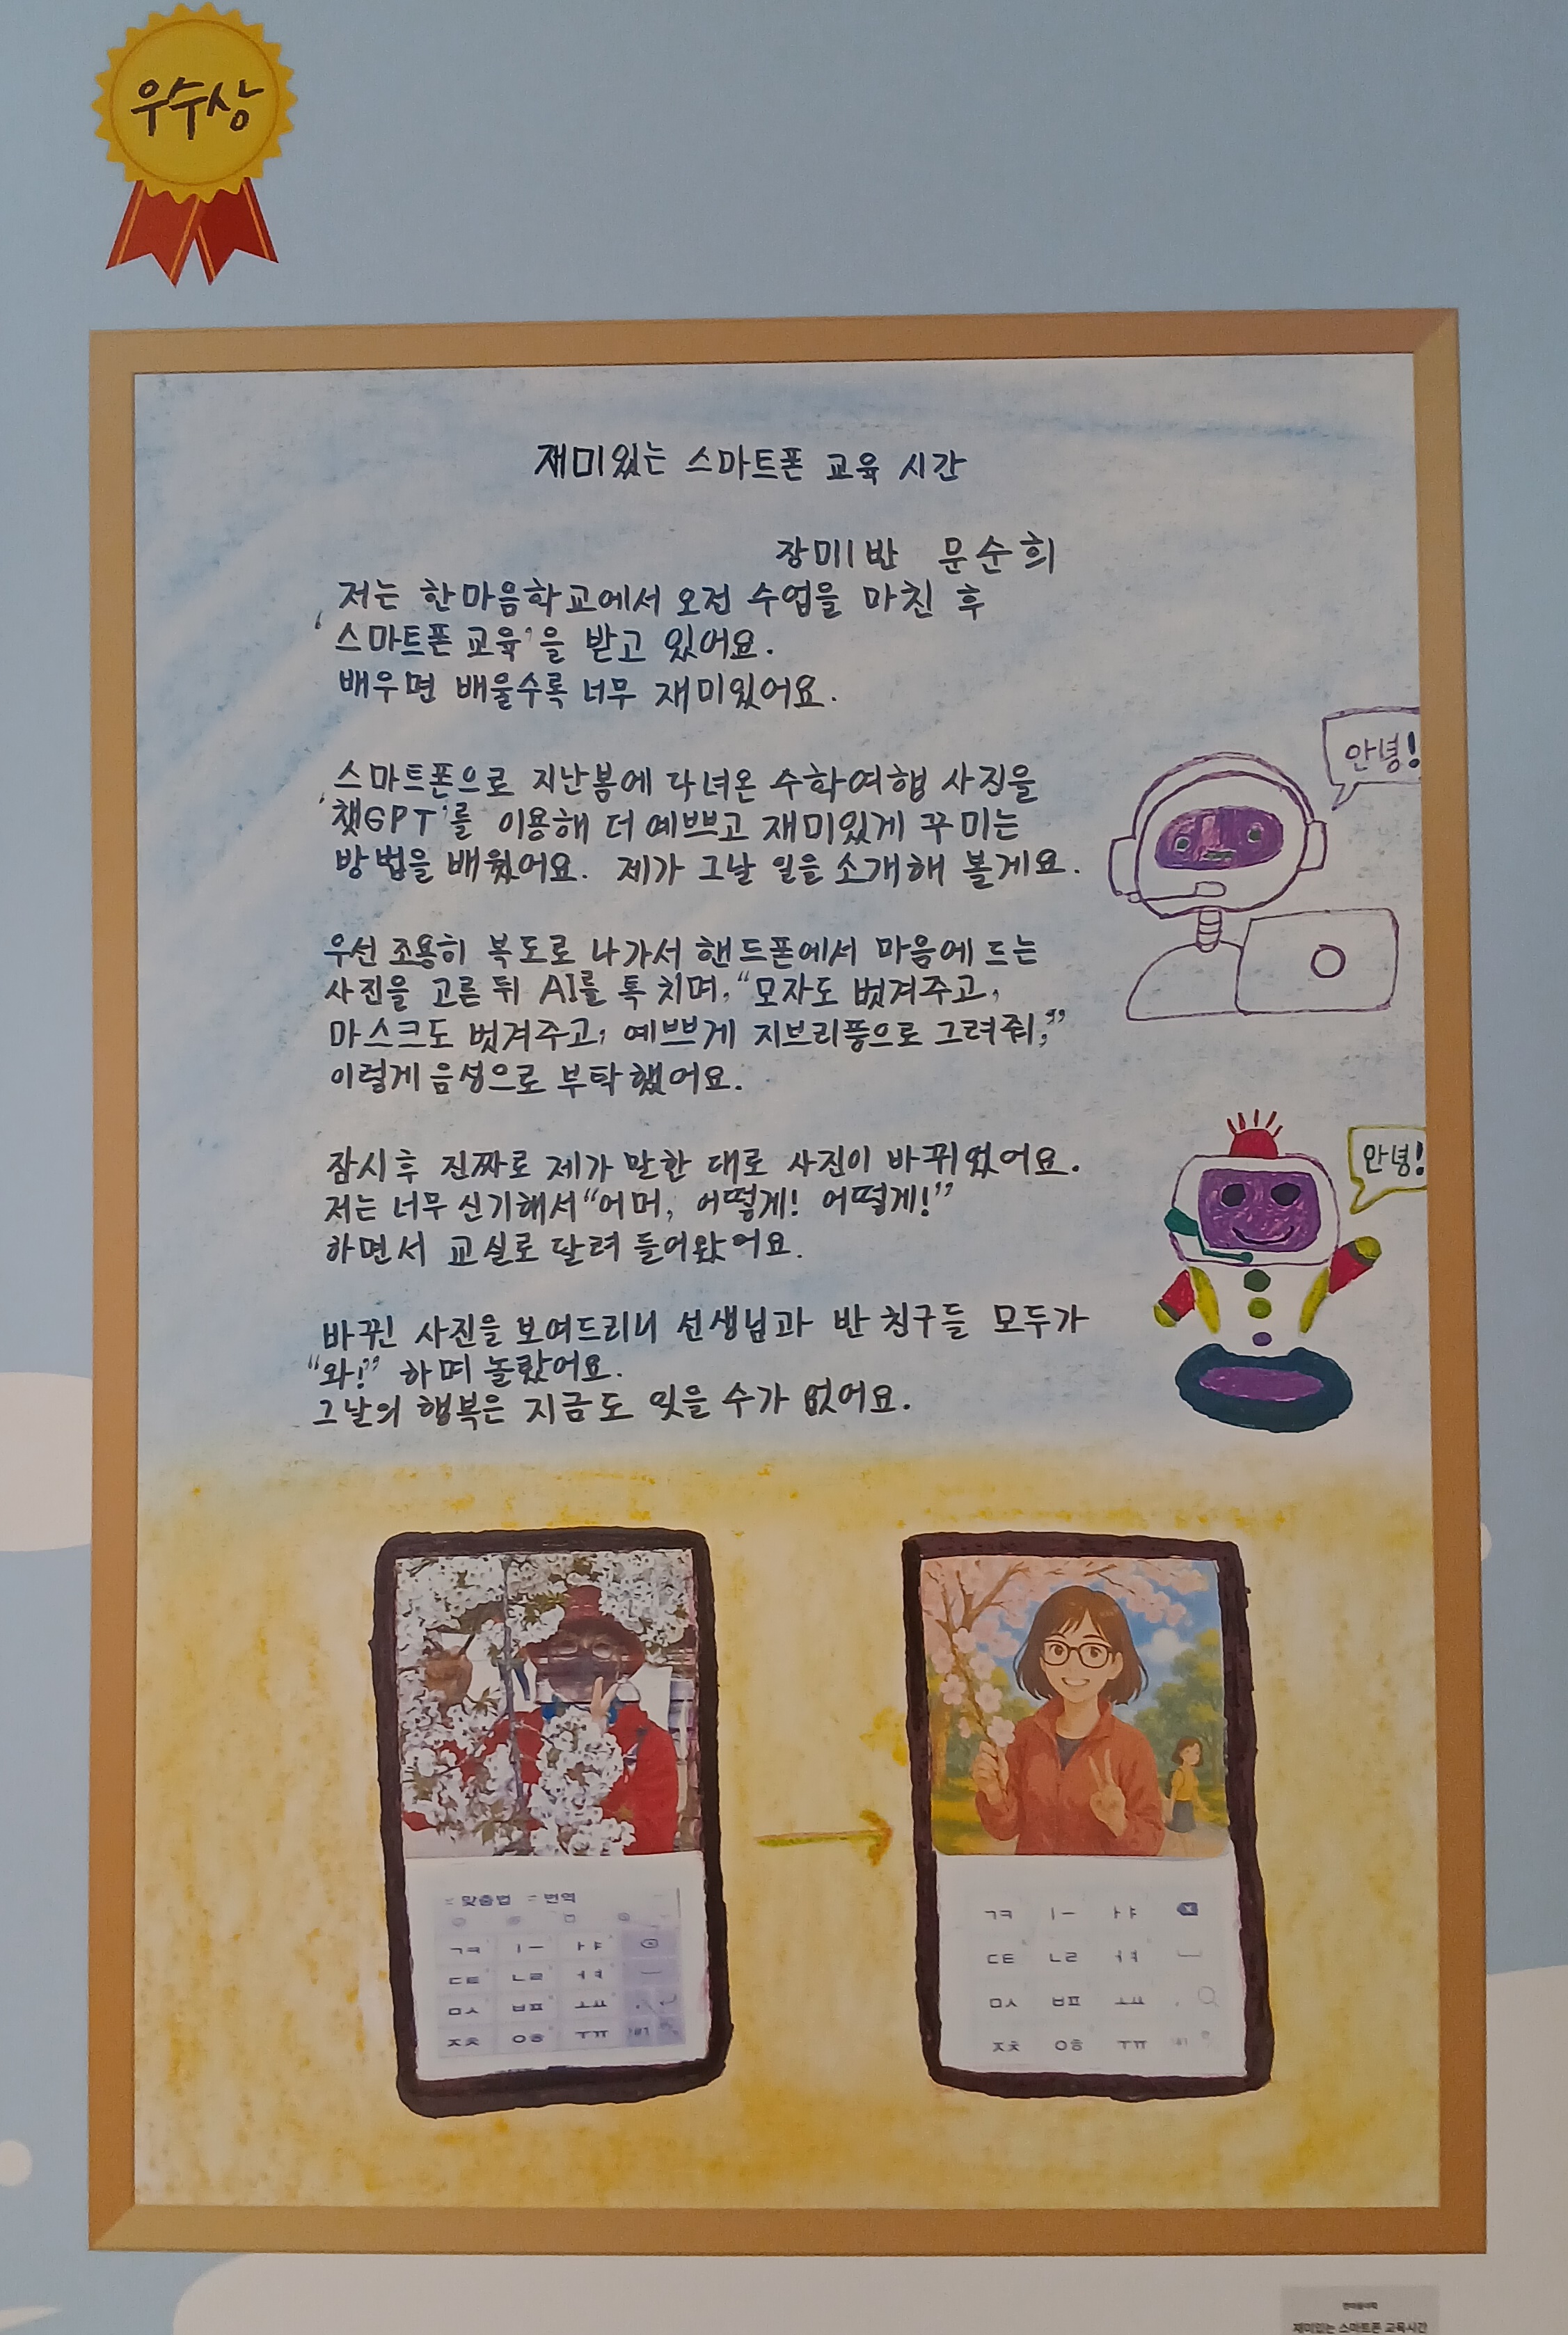 우수상
재미있는 스마트폰 교육 시간
장미1반 문순희
저는 한마음학교에서 오전 수업을 마친 후
'스마트폰 교육'을 받고 있어요.
배우면 배울수록 너무 재미있어요.
스마트폰으로 지난봄에 다녀온 수학여행 사진을
'챗GPT'를 이용해 더 예쁘고 재미있게 꾸미는
방법을 배웠어요. 제가 그날 일을 소개해 볼게요.
안녕!
우선 조용히 복도로 나가서 핸드폰에서 마음에 드는
사진을 고른 뒤 AI를 톡 치며, “모자도 벗겨주고,
마스크도 벗겨주고, 예쁘게 지브리풍으로 그려줘,”
이렇게 음성으로 부탁했어요.
잠시후 진짜로 제가 말한 대로 사진이 바뀌었어요.
저는 너무 신기해서 “어머, 어떻게! 어떻게!”
하면서 교실로 달려 들어왔어요.
안녕!
바뀐 사진을 보여드리니 선생님과 반 친구들 모두가
“와!” 하며 놀랐어요.
그날의 행복은 지금도 잊을 수가 없어요.
맞춤법 번역
ㄱㅋ ㅣㅡ ㅏㅑ
ㄷㅌ ㄴㄹ ㅓㅕ
ㅁㅅ ㅂㅍ ㅗㅛ
ㅈㅊ ㅇㅎ ㅜㅠ !#1
ㄱㅋ ㅣㅡ ㅏㅑ
ㄷㅌ ㄴㄹ ㅓㅕ
ㅁㅅ ㅂㅍ ㅗㅛ
ㅈㅊ ㅇㅎ ㅜㅠ
재미있는 스마트폰 교육시간